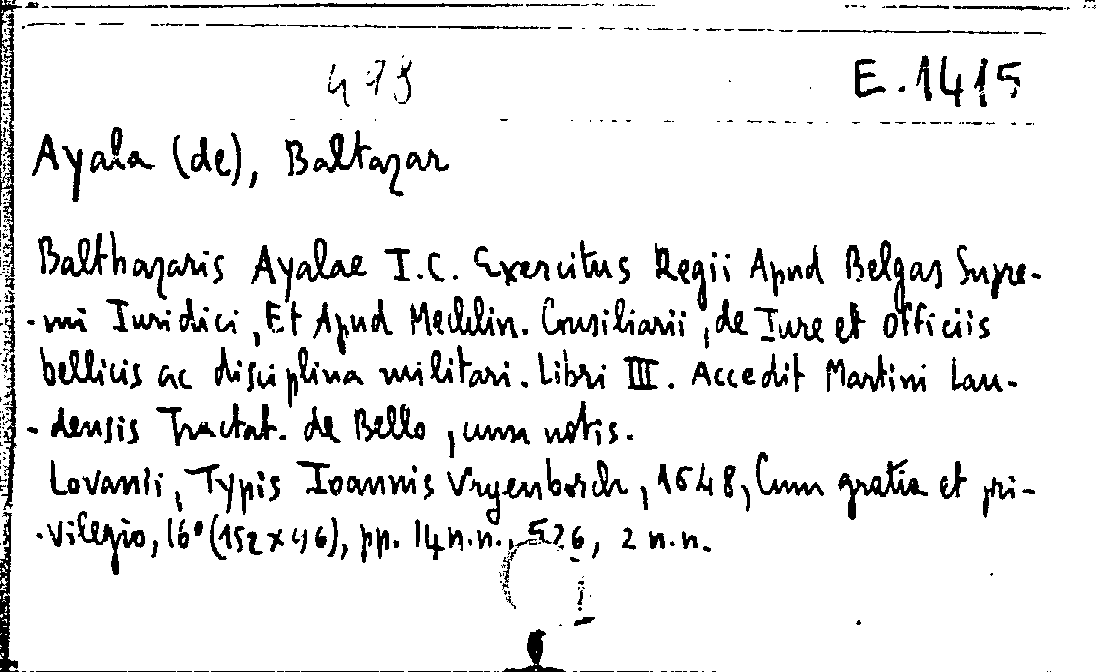 473 E.1415
Ayala (de), Baltazar
Balthazaris Ayalae I.C. Exercitus Regii Apud Belgas Supre-
-mi Iuridici, Et Apud Mechlin. Consiliarii, de Iure et Officiis
bellicis ac disciplina militari. Libri III. Accedit Martini Lau-
-densis Tractat. de Bello, cum notis.
Lovanii, Typis Ioannis Vryenborch, 1648, Cum gratia et pri-
-vilegio, 16° (152x96), pp. 14 n.n., 526, 2 n.n.